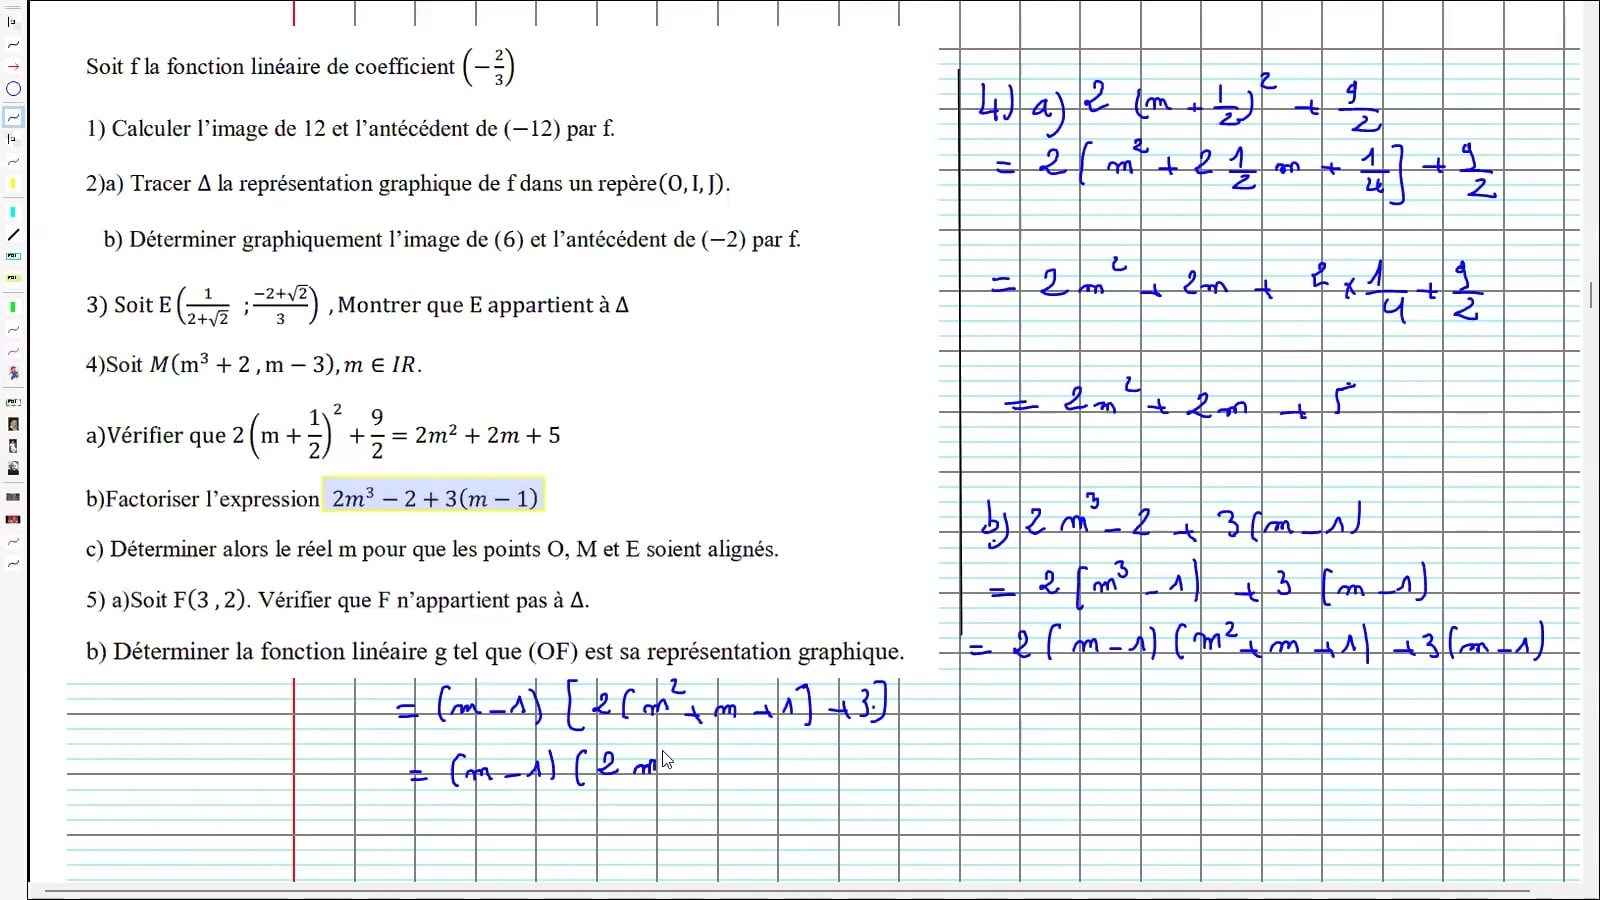 Soit f la fonction linéaire de coefficient (−2/3)
1) Calculer l'image de 12 et l'antécédent de (−12) par f.
2)a) Tracer Δ la représentation graphique de f dans un repère(O, I, J).
b) Déterminer graphiquement l'image de (6) et l'antécédent de (−2) par f.
3) Soit E(1/(2+√2) ; (−2+√2)/3) , Montrer que E appartient à Δ
4)Soit M(m³ + 2 , m − 3), m ∈ IR.
a)Vérifier que 2(m + 1/2)² + 9/2 = 2m² + 2m + 5
b)Factoriser l'expression 2m³ − 2 + 3(m − 1)
c) Déterminer alors le réel m pour que les points O, M et E soient alignés.
5) a)Soit F(3 , 2). Vérifier que F n'appartient pas à Δ.
b) Déterminer la fonction linéaire g tel que (OF) est sa représentation graphique.
4) a) 2 (m + 1/2)² + 9/2
= 2 [m² + 2 1/2 m + 1/4] + 9/2
= 2m² + 2m + 2 × 1/4 + 9/2
= 2m² + 2m + 5
b) 2 m³ − 2 + 3(m − 1)
= 2 (m³ − 1) + 3 (m − 1)
= 2 (m − 1) (m² + m + 1) + 3(m − 1)
= (m − 1) [2(m² + m + 1) + 3]
= (m − 1) (2 m